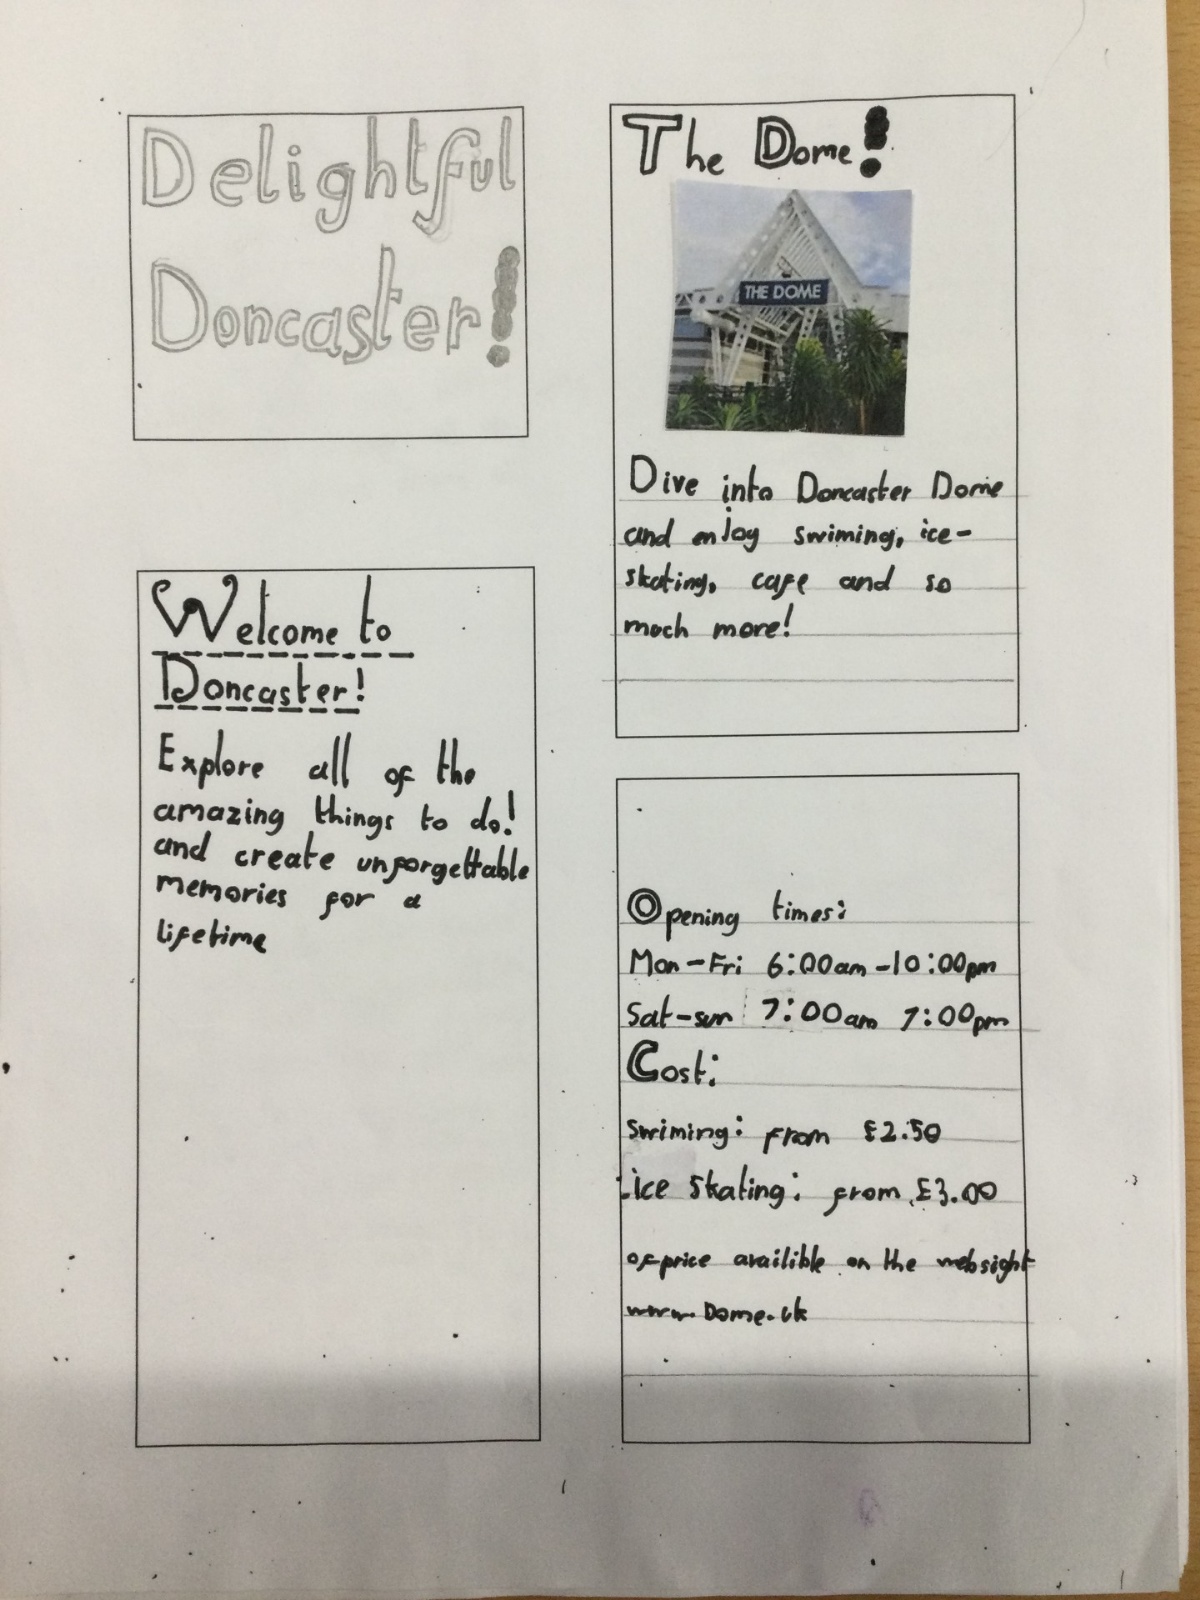 Delightful
Doncaster!
Welcome to
Doncaster!
Explore all of the
amazing things to do!
and create unforgettable
memories for a
lifetime
The Dome!
THE DOME
Dive into Doncaster Dome
and enjoy swiming, ice-
skating, cafe and so
much more!
Opening times:
Mon-Fri 6:00am-10:00pm
Sat-sun 7:00am 7:00pm
Cost:
swiming: from £2.50
ice skating: from £3.00
of price availible on the websight
www.Dome.uk